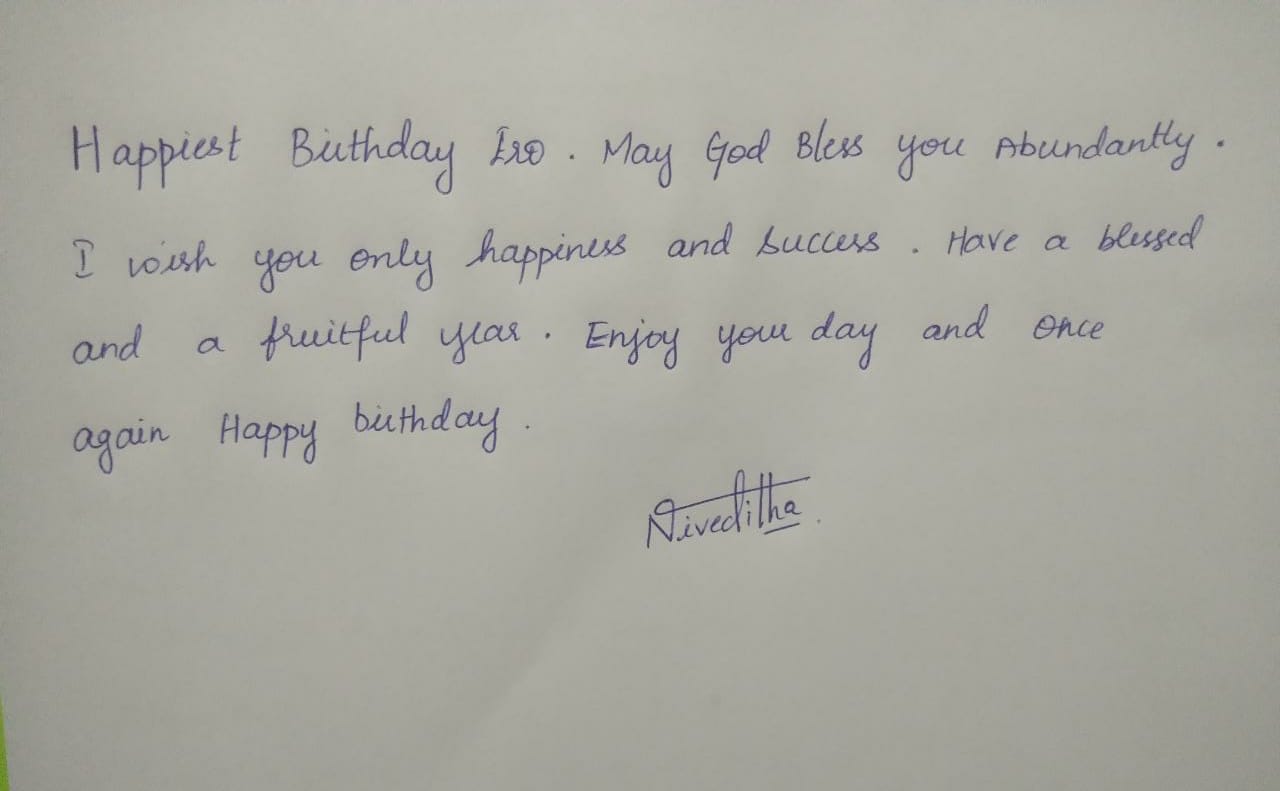 Happiest Birthday Iro. May God Bless you Abundantly.
I wish you only happiness and success. Have a blessed
and a fruitful year. Enjoy your day and once
again Happy birthday.
Niveditha.